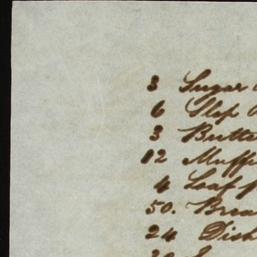 3 Sugar
6 Slop
3 Butte
12 Muffi
4 Loaf p
50. Brea
24 Dish